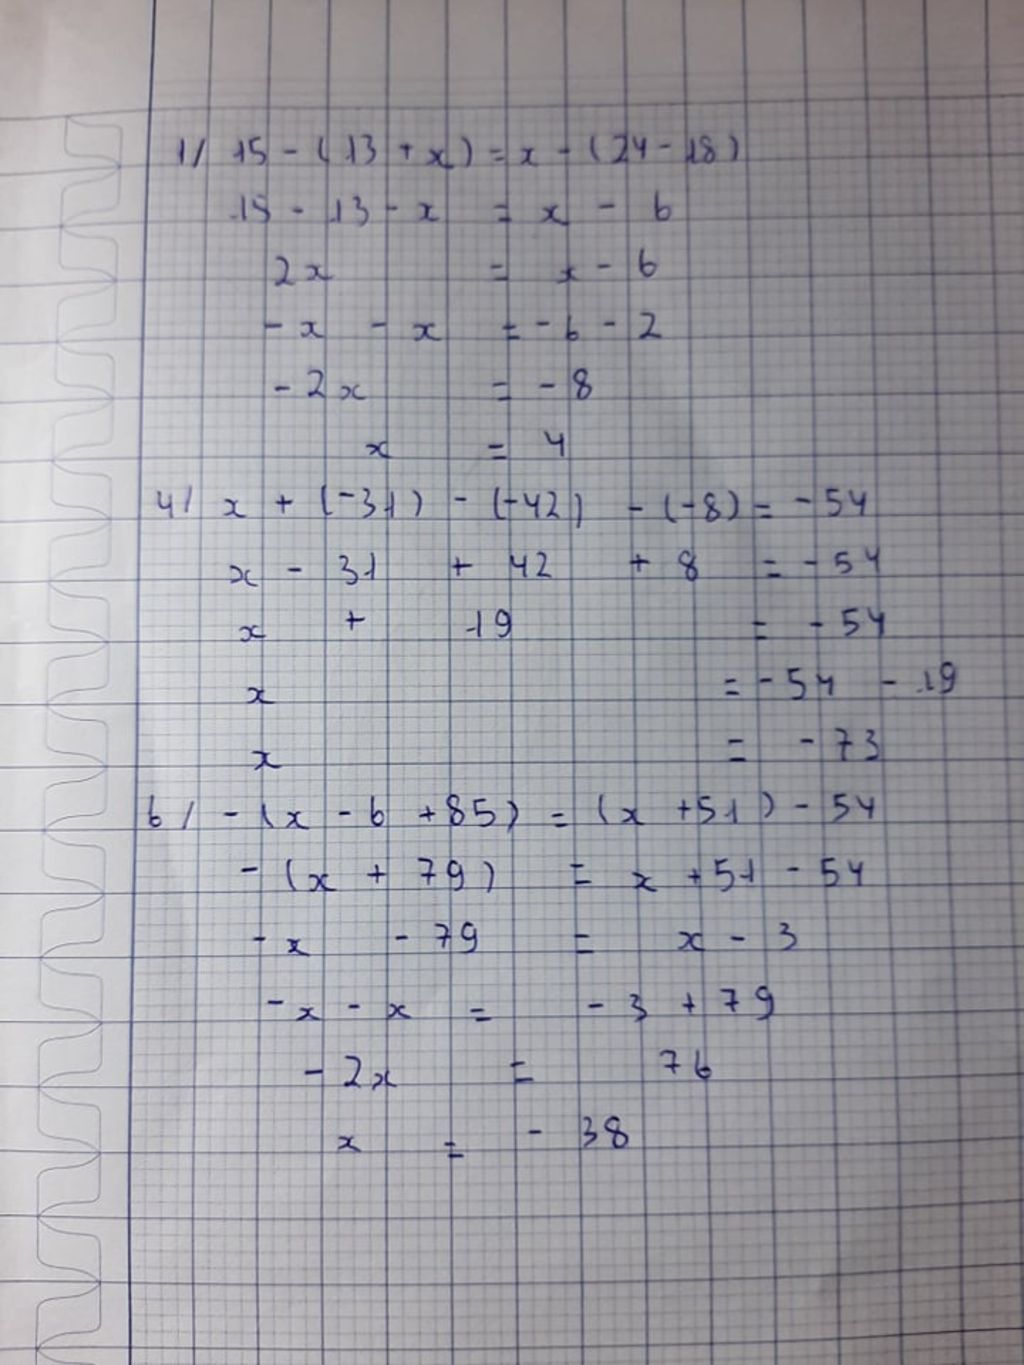 1/ 15 - (13 + x) = x - (24 - 18)
15 - 13 - x = x - 6
2x = x - 6
- x - x = - 6 - 2
- 2x = - 8
x = 4
4/ x + (-31) - (-42) - (-8) = - 54
x - 31 + 42 + 8 = - 54
x + 19 = - 54
x = - 54 - 19
x = - 73
6/ - (x - 6 + 85) = (x + 51) - 54
- (x + 79) = x + 51 - 54
- x - 79 = x - 3
- x - x = - 3 + 79
- 2x = 76
x = - 38